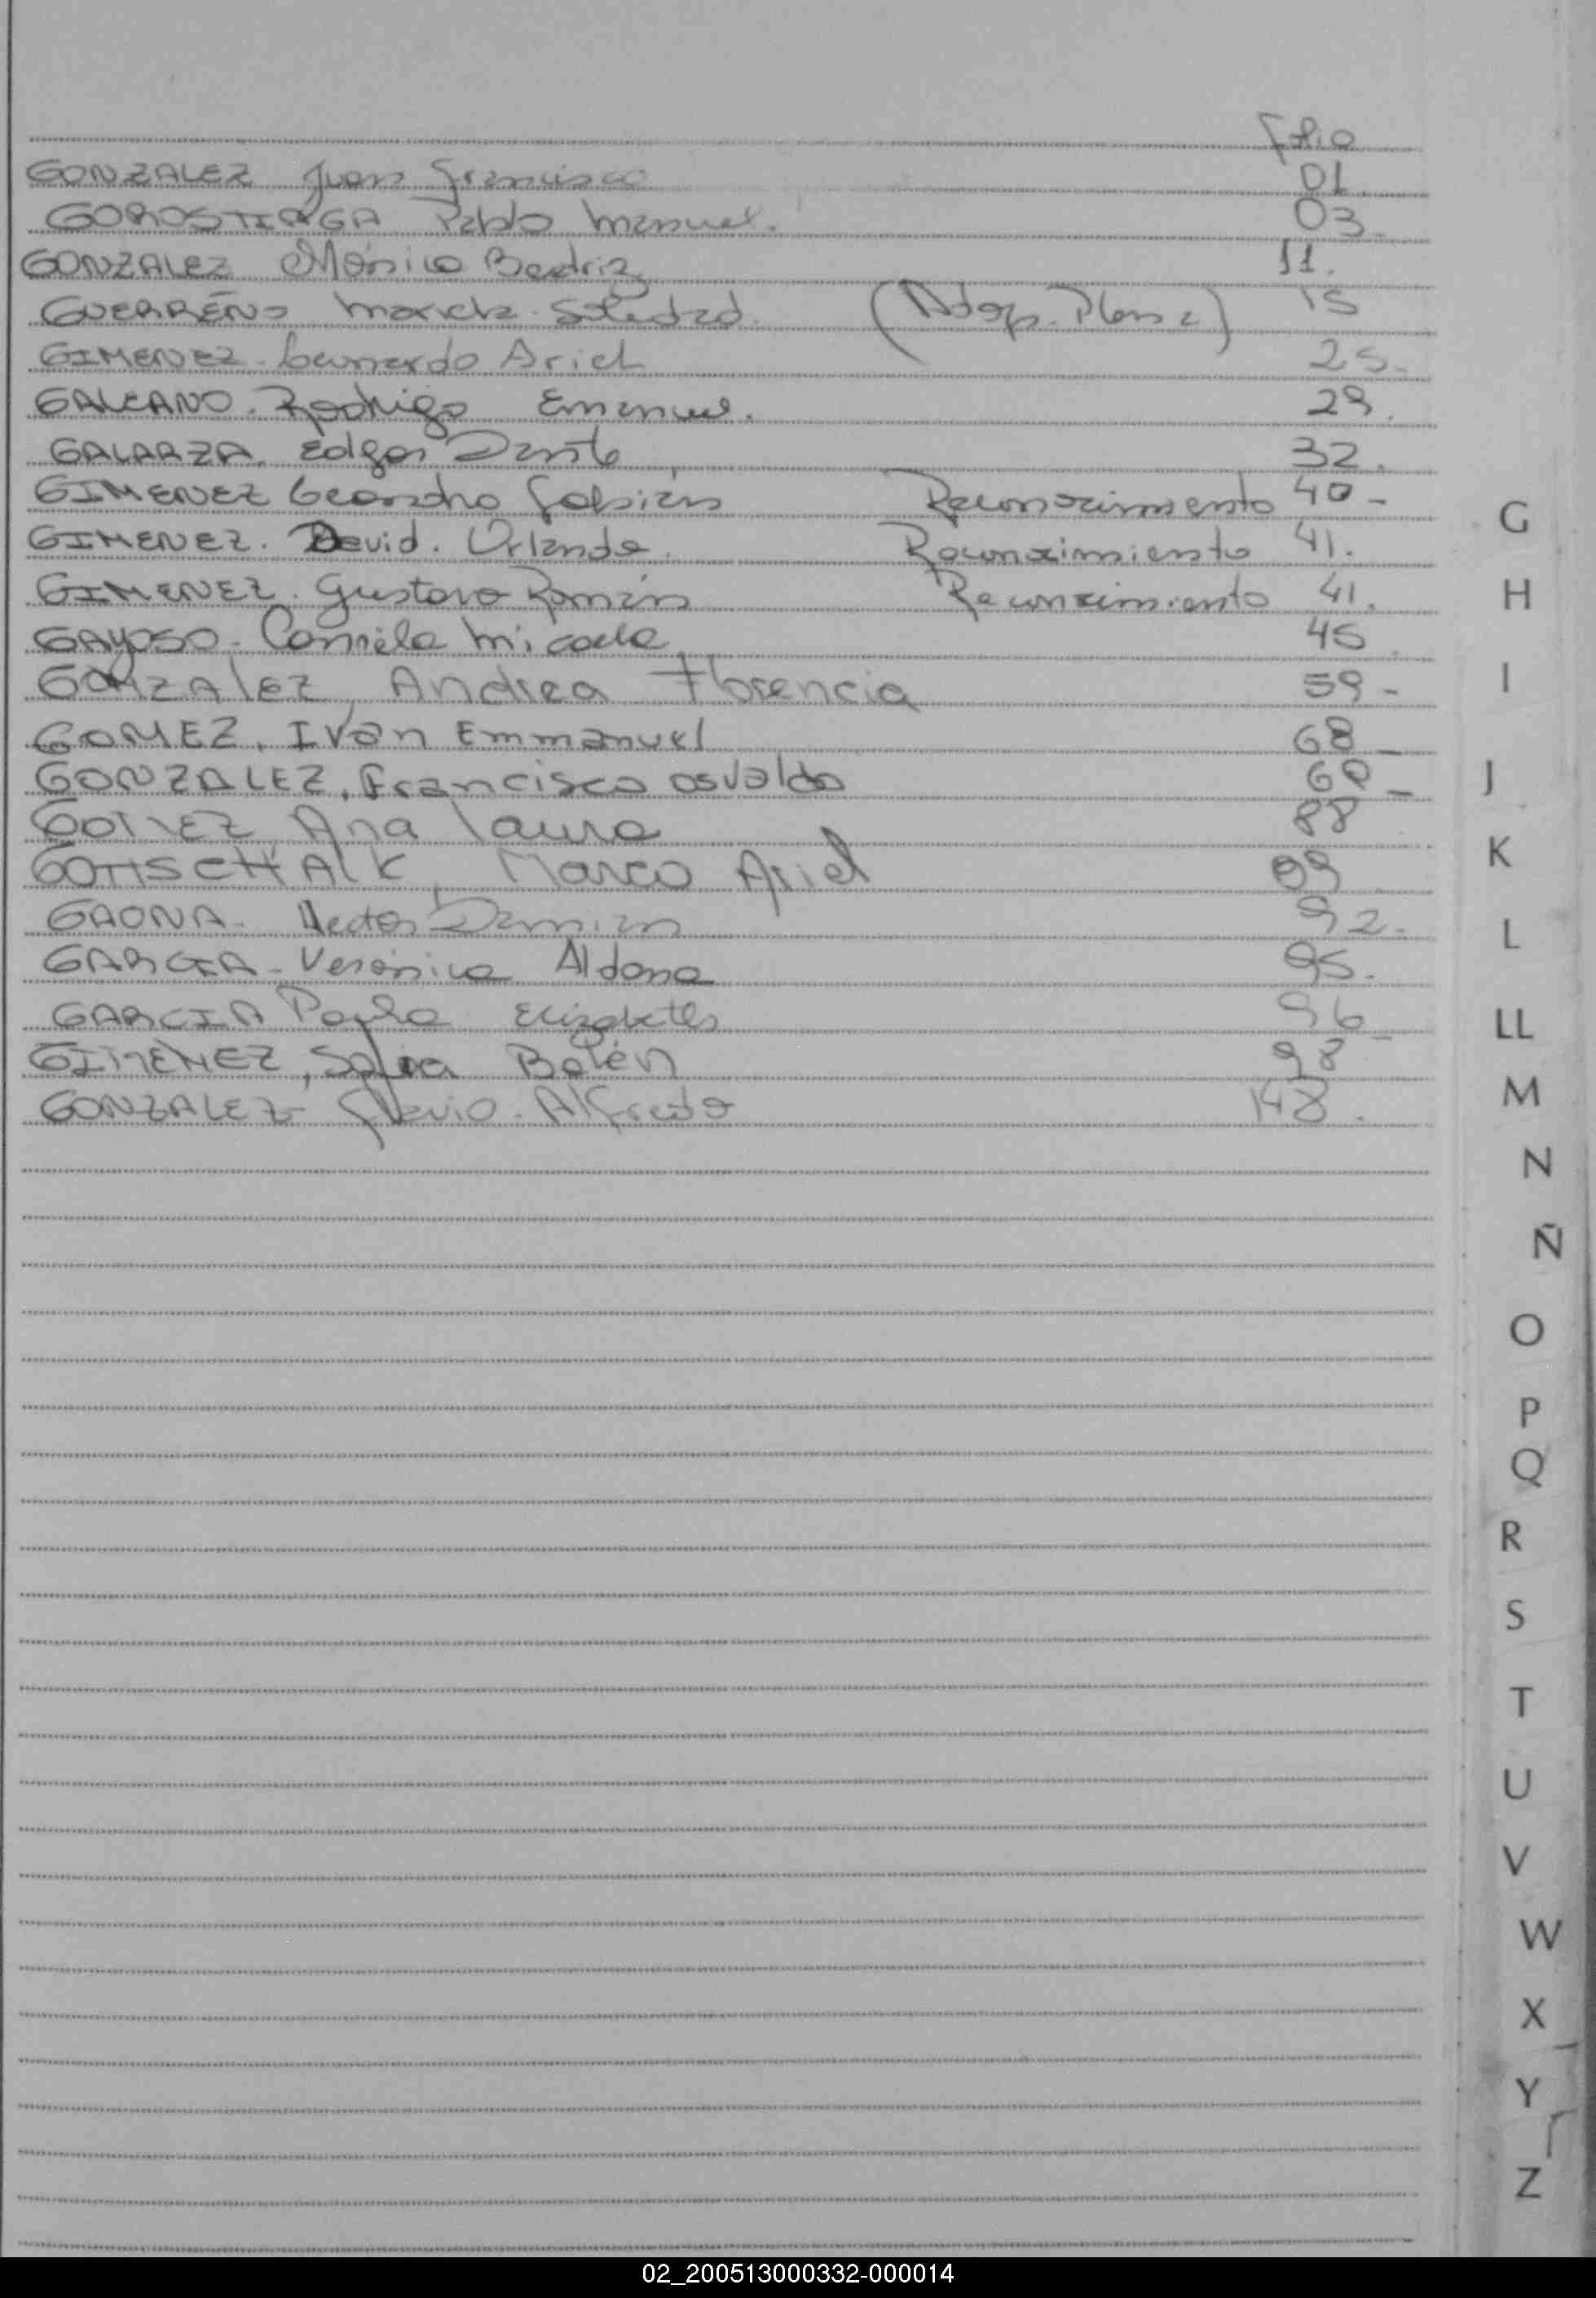 Folio
GONZALEZ Juan Francisco 01.
GOROSTIAGA Pablo Manuel. 03.
GONZALEZ Mónica Beatriz 11.
GUERREÑO Marcela Soledad. (Adop. Plena) 15
GIMENEZ Leonardo Ariel 25.
GALEANO. Rodrigo Emanuel. 29.
GALARZA. Edgar Dante 32.
GIMENEZ Leandro Fabián Reconocimiento 40-
GIMENEZ. David. Orlando. Reconocimiento 41.
GIMENEZ. Gustavo Román Reconocimiento 41.
GAYOSO- Camila Micaela 45
GONZALEZ, Andrea Florencia 59-
GOMEZ, Ivan Emmanuel 68-
GONZALEZ, Francisco Osvaldo
GOMEZ Ana Laura 88
GOTTSCHALK, Marco Ariel
GAONA- Hector Damian 92.
GARCIA- Verónica Aldana 95.
GARCIA Paula Elizabeth 96-
GIMENEZ, Belén 98
GONZALEZ- Flavio. Alfredo 148.
G
H
I
J
K
L
LL
M
N
Ñ
O
P
Q
R
S
T
U
V
W
X
Y
Z
02_200513000332-000014